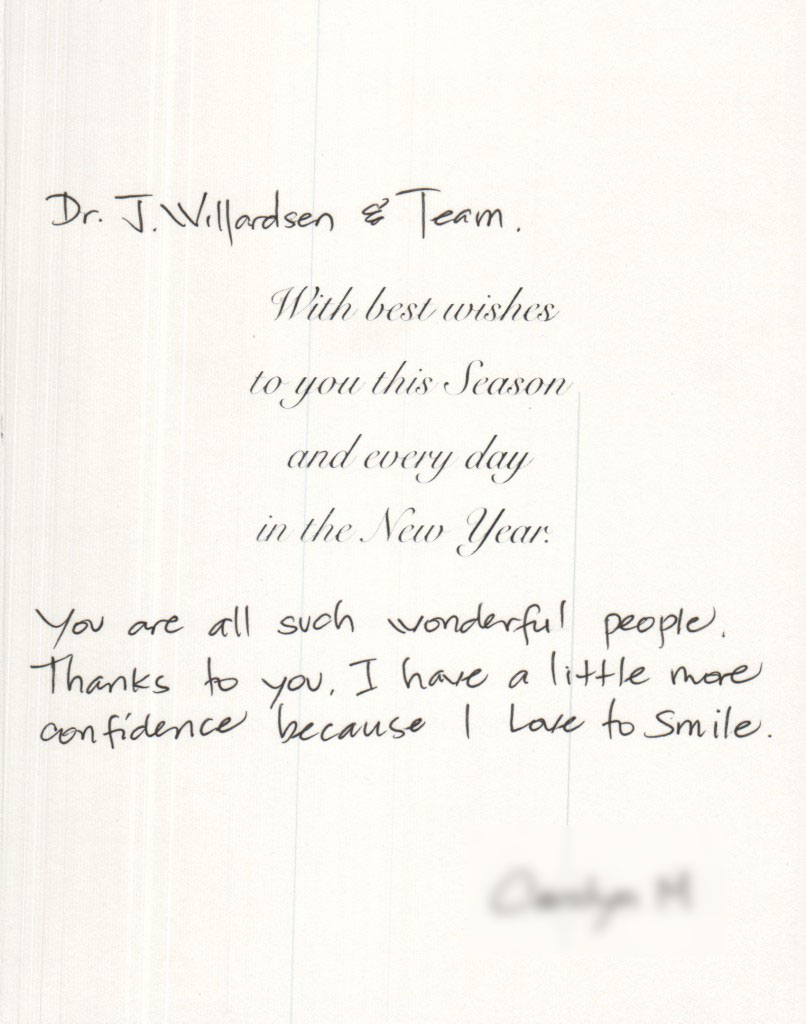 Dr. J. Willardsen & Team.
With best wishes
to you this Season
and every day
in the New Year.
You are all such wonderful people.
Thanks to you, I have a little more
confidence because I Love to Smile.